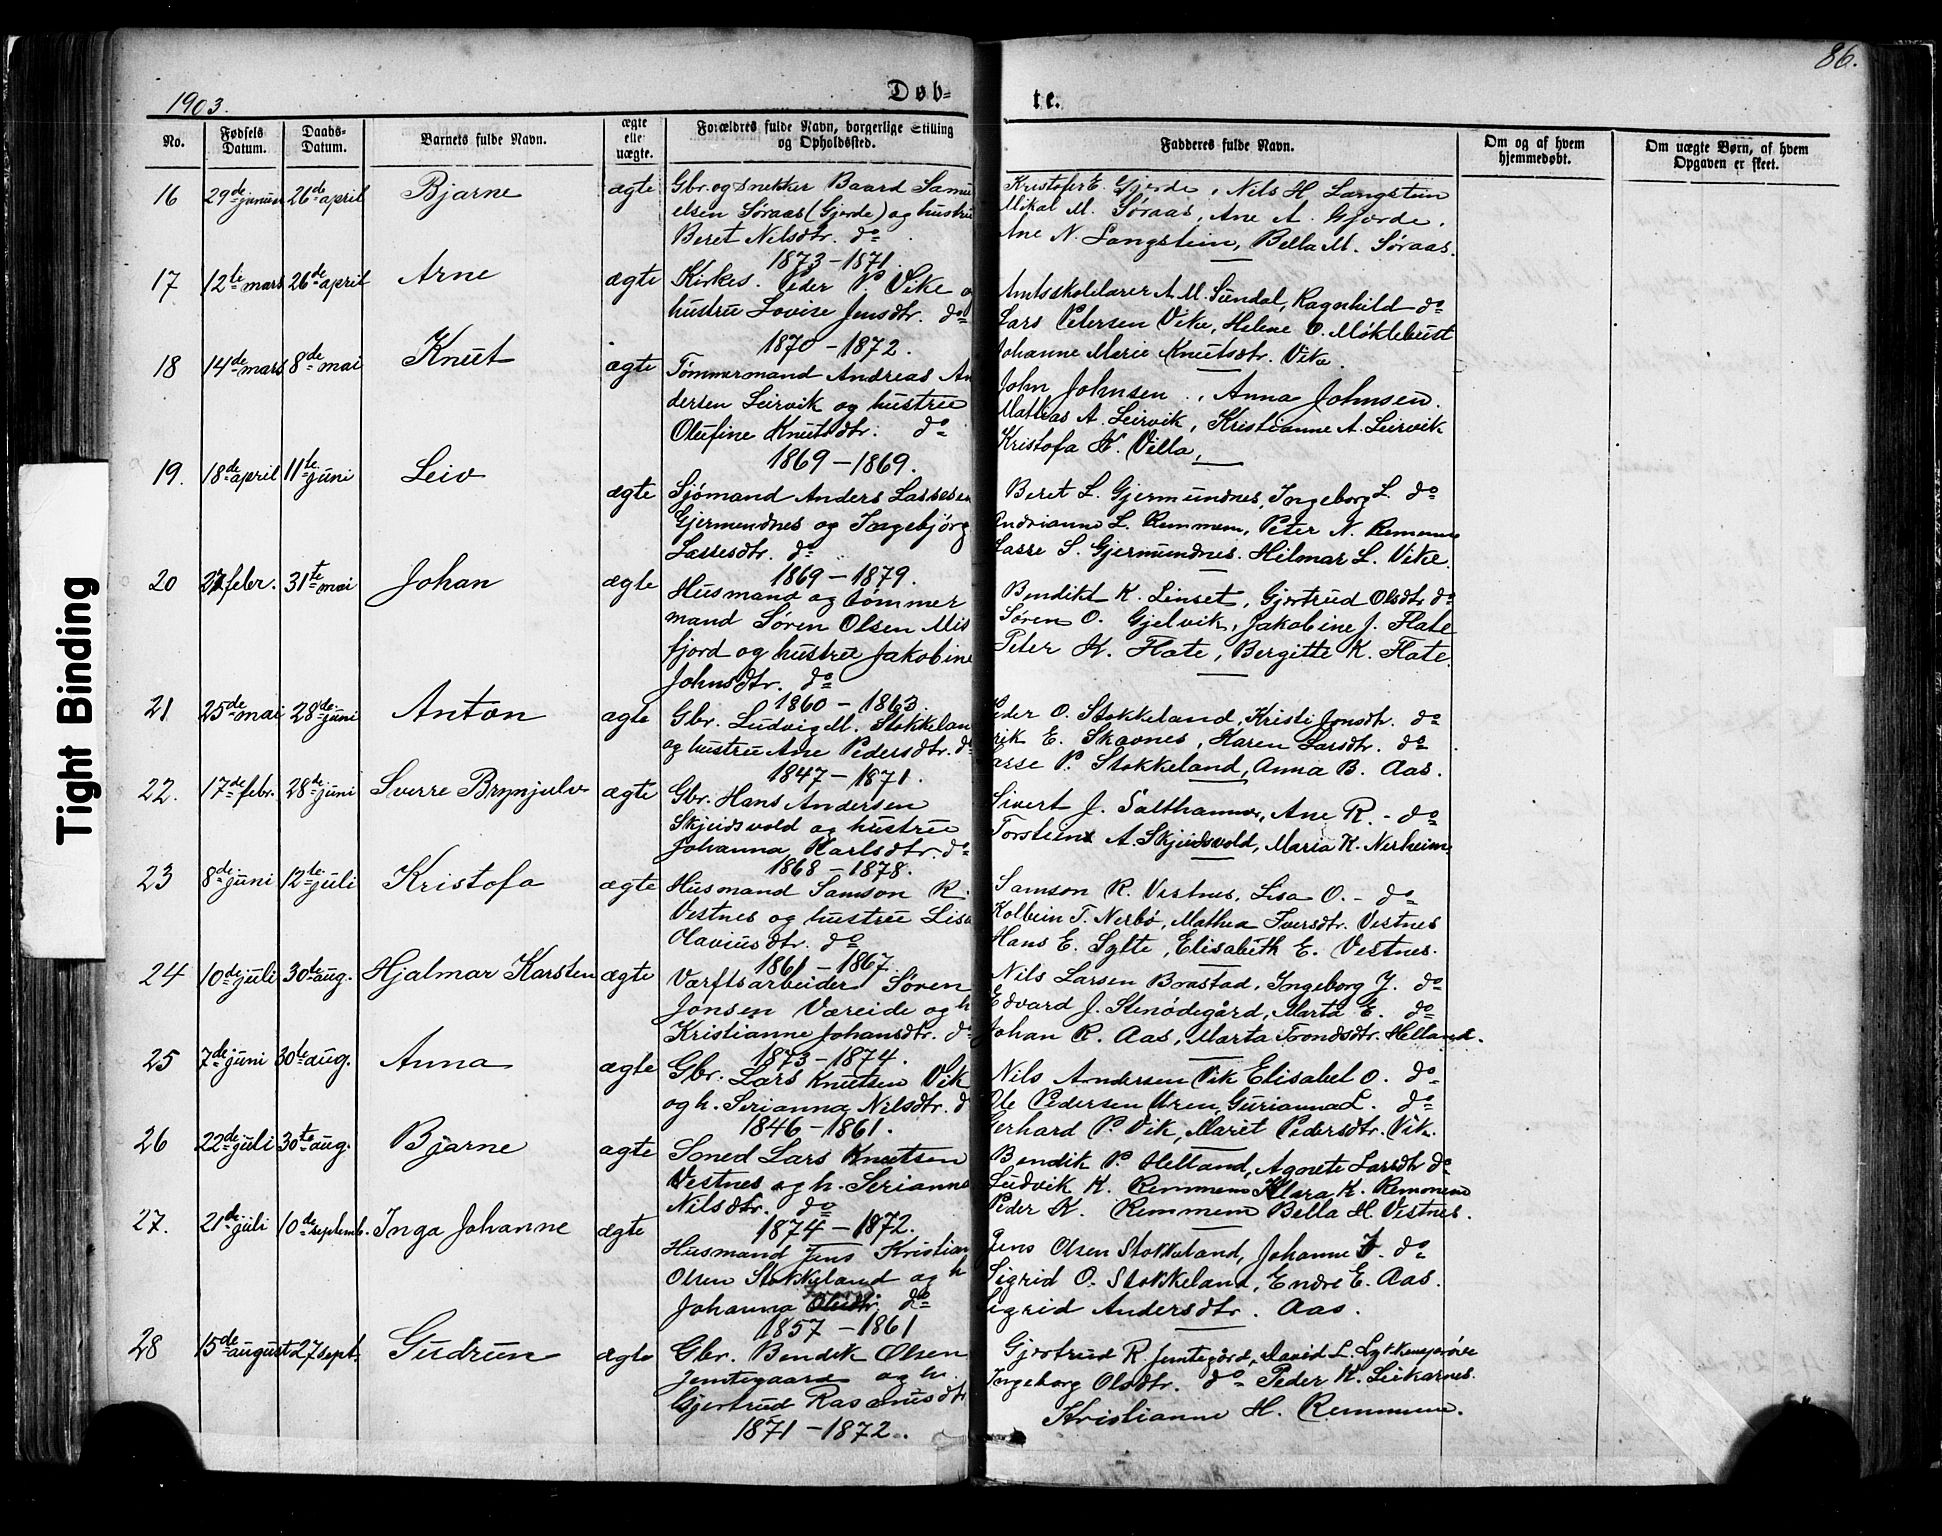 86.
1903.
Døb-
te.
No.
Fødsels Datum.
Daabs-Datum.
Barnets fulde Navn.
ægte elle uægte.
Forældres fulde Navn, borgerlige Stilling og Opholdssted.
Fadderes fulde Navn.
Om og af hvem hjemmedøbt.
Om uægte Børn, af hvem Opgaven er skeet.
16 29de januar 26de april Bjarne ægte Gbr. og Snekker Baard Samu
elsen Søraas (Gjerde) og hustru
Beret Nilsdtr. do
1873-1871.
Kristofer E. Gjerde, Nils H. Langstein
Mikal M. Søraas, Ane A. Gjerde.
Ane N. Langstein, Bella M. Søraas.
17. 12te mars 26de april Arne ægte Kirkes. Peder P. Vike o
hustru Lovise Jensdtr. do
1870-1872.
Amtsskolelærer A. M. Sundal, Ragnhild do
Lars Petersen Vike, Helene O. Møklebust
Johanne Marie Knutsdtr. Vike.
18 14de mars 8de mai Knut ægte Tømmermand Andreas An
dersen Leirvik og hustru
Olufine Knutsdtr. do
1869-1869.
John Johnsen, Anna Johnsen.
Mathias A. Leirvik, Kristianne A. Leirvik
Kristofa K. Villa,
19. 18de april 11te juni Leiv ægte Sjømand Anders Lassesen
Gjermundnes og Ingebjørg
Lassesdtr. do
1869-1879.
Beret L. Gjermundnes, Ingeborg L. do
Andrianne L. Remmem, Peter N. Remmem
Lasse S. Gjermundnes. Hilmar L. Vike.
20 27 febr. 31te mai Johan ægte Husmand og tømmer
mand Søren Olsen Mis
fjord og hustru Jakobine
Johnsdtr. do
1860-1863.
Bendikt K. Linset, Gjertrud Olsdtr do
Søren O. Gjelvik, Jakobine J. Flate
Peter K. Flate, Bergitte K. Flate.
21 25de mai 28de juni Anton ægte Gbr. Ludvig M. Stokkelan
og hustru Ane Pedersdtr. do
1847-1871.
Peder O. Stokkeland, Kristi Jonsdtr. do
Erik E. Skavnes, Karen Larsdtr. do
Lasse P. Stokkeland, Anna B. Aas.
22. 17de febr. 28de juni Sverre Brynjulv ægte Gbr. Hans Andersen
Skjeidsvold og hustru
Johanna Karlsdtr. do
1868-1878.
Sivert J. Salthammer, Ane R. - do
Torstein A. Skjeidsvold, Maria K. Nerheim.
23 8de juni 12te juli Kristofa ægte Husmand Samson R.
Vestnes og hustru Lisa
Olaviusdtr. do
1861-1867.
Samson R. Vestnes, Lisa O. - do
Kolbein T. Nerbø, Mathea Iversdtr. Vestnes
Hans E. Sylte, Elisabeth E. Vestnes.
24 10de juli 30te aug. Hjalmar Karsten ægte Værftsarbeider Søren
Jonsen Væreide og h
Kristianne Johansdtr. do
1873-1874.
Nils Larsen Brastad, Ingeborg J. do
Edvard J. Stenødegård, Marta E. do
Johan R. Aas, Marta Trondsdtr. Helland.
25 7de juni 30te aug. Anna ægte Gbr. Lars Knutsen Vik
og h. Serianna Nilsdtr. d
1846-1861.
Nils Andersen Vik Elisabet O. do
Ole Pedersen Uren, Gurianna L. do
Gerhard P. Vik, Marit Pedersdtr. Vik.
26 22de juli 30te aug. Bjarne ægte Smed Lars Knutsen
Vestnes og h. Serianna
Nilsdtr. do
1874-1872.
Bendik P. Helland, Agnete Larsdtr do
Ludvik K. Remmem Klara K. Remmem
Peder K. Remmem Bella H. Vestnes.
27. 21de juli 10de septemb. Inga Johanne ægte Husmand Jens Kristian
Olsen Stokkeland og h
Johanna Olsdtr. do
1857-1861
Jens Olsen Stokkeland, Johanne I. do
Sigrid O. Stokkeland, Endre E. Aas.
Sigrid Andersdtr. Aas.
28 15de august 27 sept. Gudrun ægte Gbr. Bendik Olsen
Jemtegaard og h.
Gjertrud Rasmusdtr
1871-1872.
Gjertrud R. Jemtegård, David L.
Ingeborg Olsdtr. do Peder K. Leikarnes.
Kristianne H. Remmem.
Tight Binding